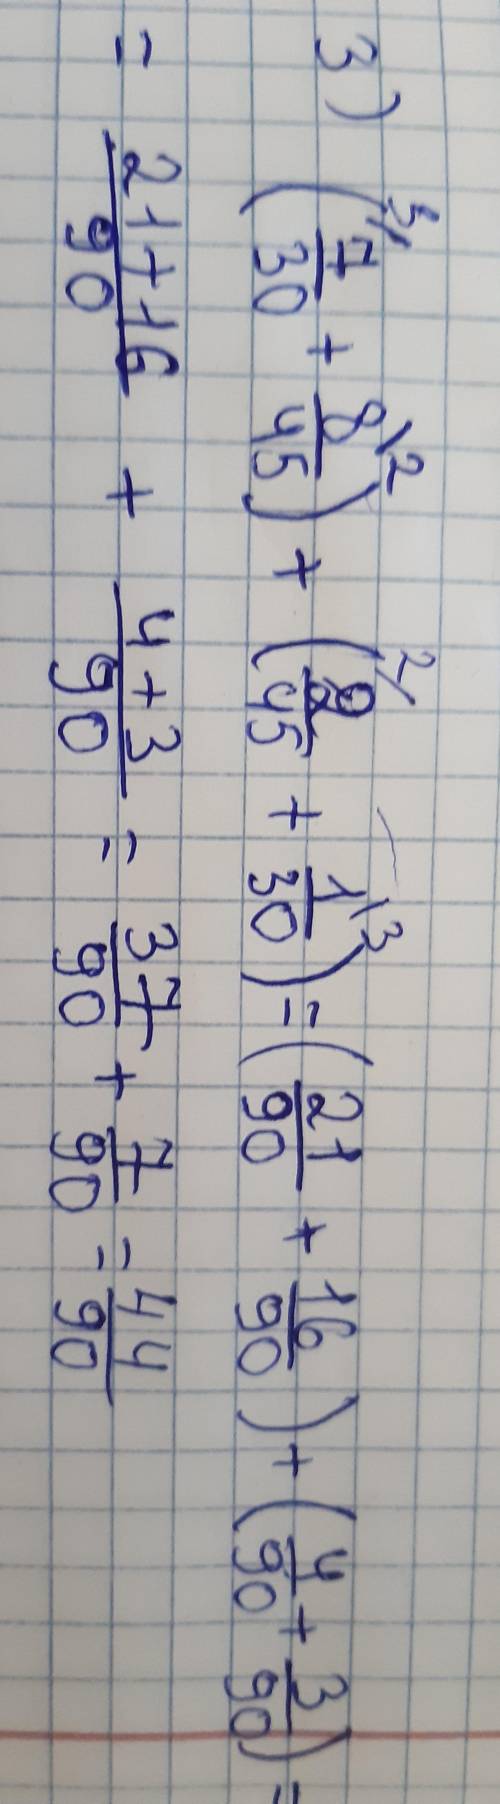 3) (3/ 7/30 + 8/45 \2) + (2/ 2/45 + 1/30 \3) = (21/90 + 16/90) + (4/90 + 3/90) =
= 21+16/90 + 4+3/90 = 37/90 + 7/90 = 44/90